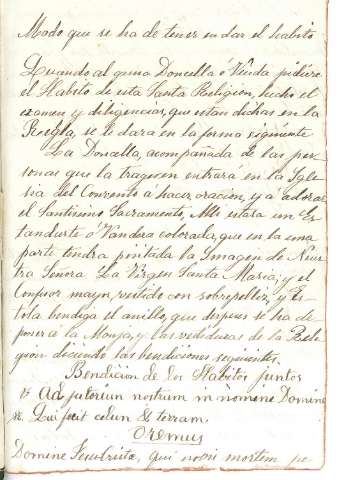 Modo que se ha de tener en dar el habito
Quando alguna Doncella ó Viuda pidiere
el Habito de esta Santa Religion, hecho el
examen y diligencias, que estan dichas en la
Regla, se le dara en la forma siguiente
La Doncella, acompañada de las per
sonas que la trageren entrará en la Igle
sia del Convento á hacer oracion, y á adorar
el Santisimo Sacramento, Alli estara un Es
tandarte ó Vandera colorada, que en la una
parte tendra pintada la Imagen de Nues
tra Señora La Virgen Santa Maria; y el
Confesor mayor, vestido con sobrepelliz, y Es
tola bendiga el anillo, que despues se ha de
poner á la Monja, y las vestiduras de la Reli
gion diciendo las bendiciones siguientes.
Bendicion de los Habitos juntos
℣ Adjutorium nostrum in nomine Domine
℟. Qui fecit celum & terram.
Oremus
Domine Jesuchriste, qui nostri mortem pe